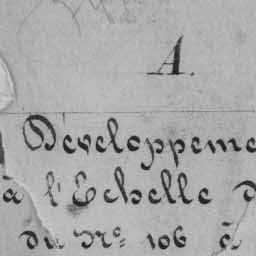 A.
Développeme
à l'Echelle d
du Nº 106 à